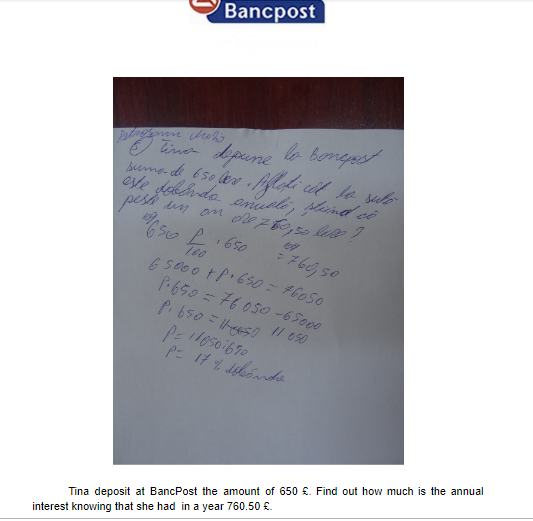 Bancpost
6) Tina depune la Bancpost
suma de 650 lei. Aflati cât la sută
este dobânda anuală, știind că
peste un an are 760,50 lei?
650 P/100 · 650 = 760,50
65000 + P · 650 = 76050
P · 650 = 76050 - 65000
P · 650 = 11050
P = 11050 : 650
P = 17 % dobânda
Tina deposit at BancPost the amount of 650 £. Find out how much is the annual
interest knowing that she had in a year 760.50 £.